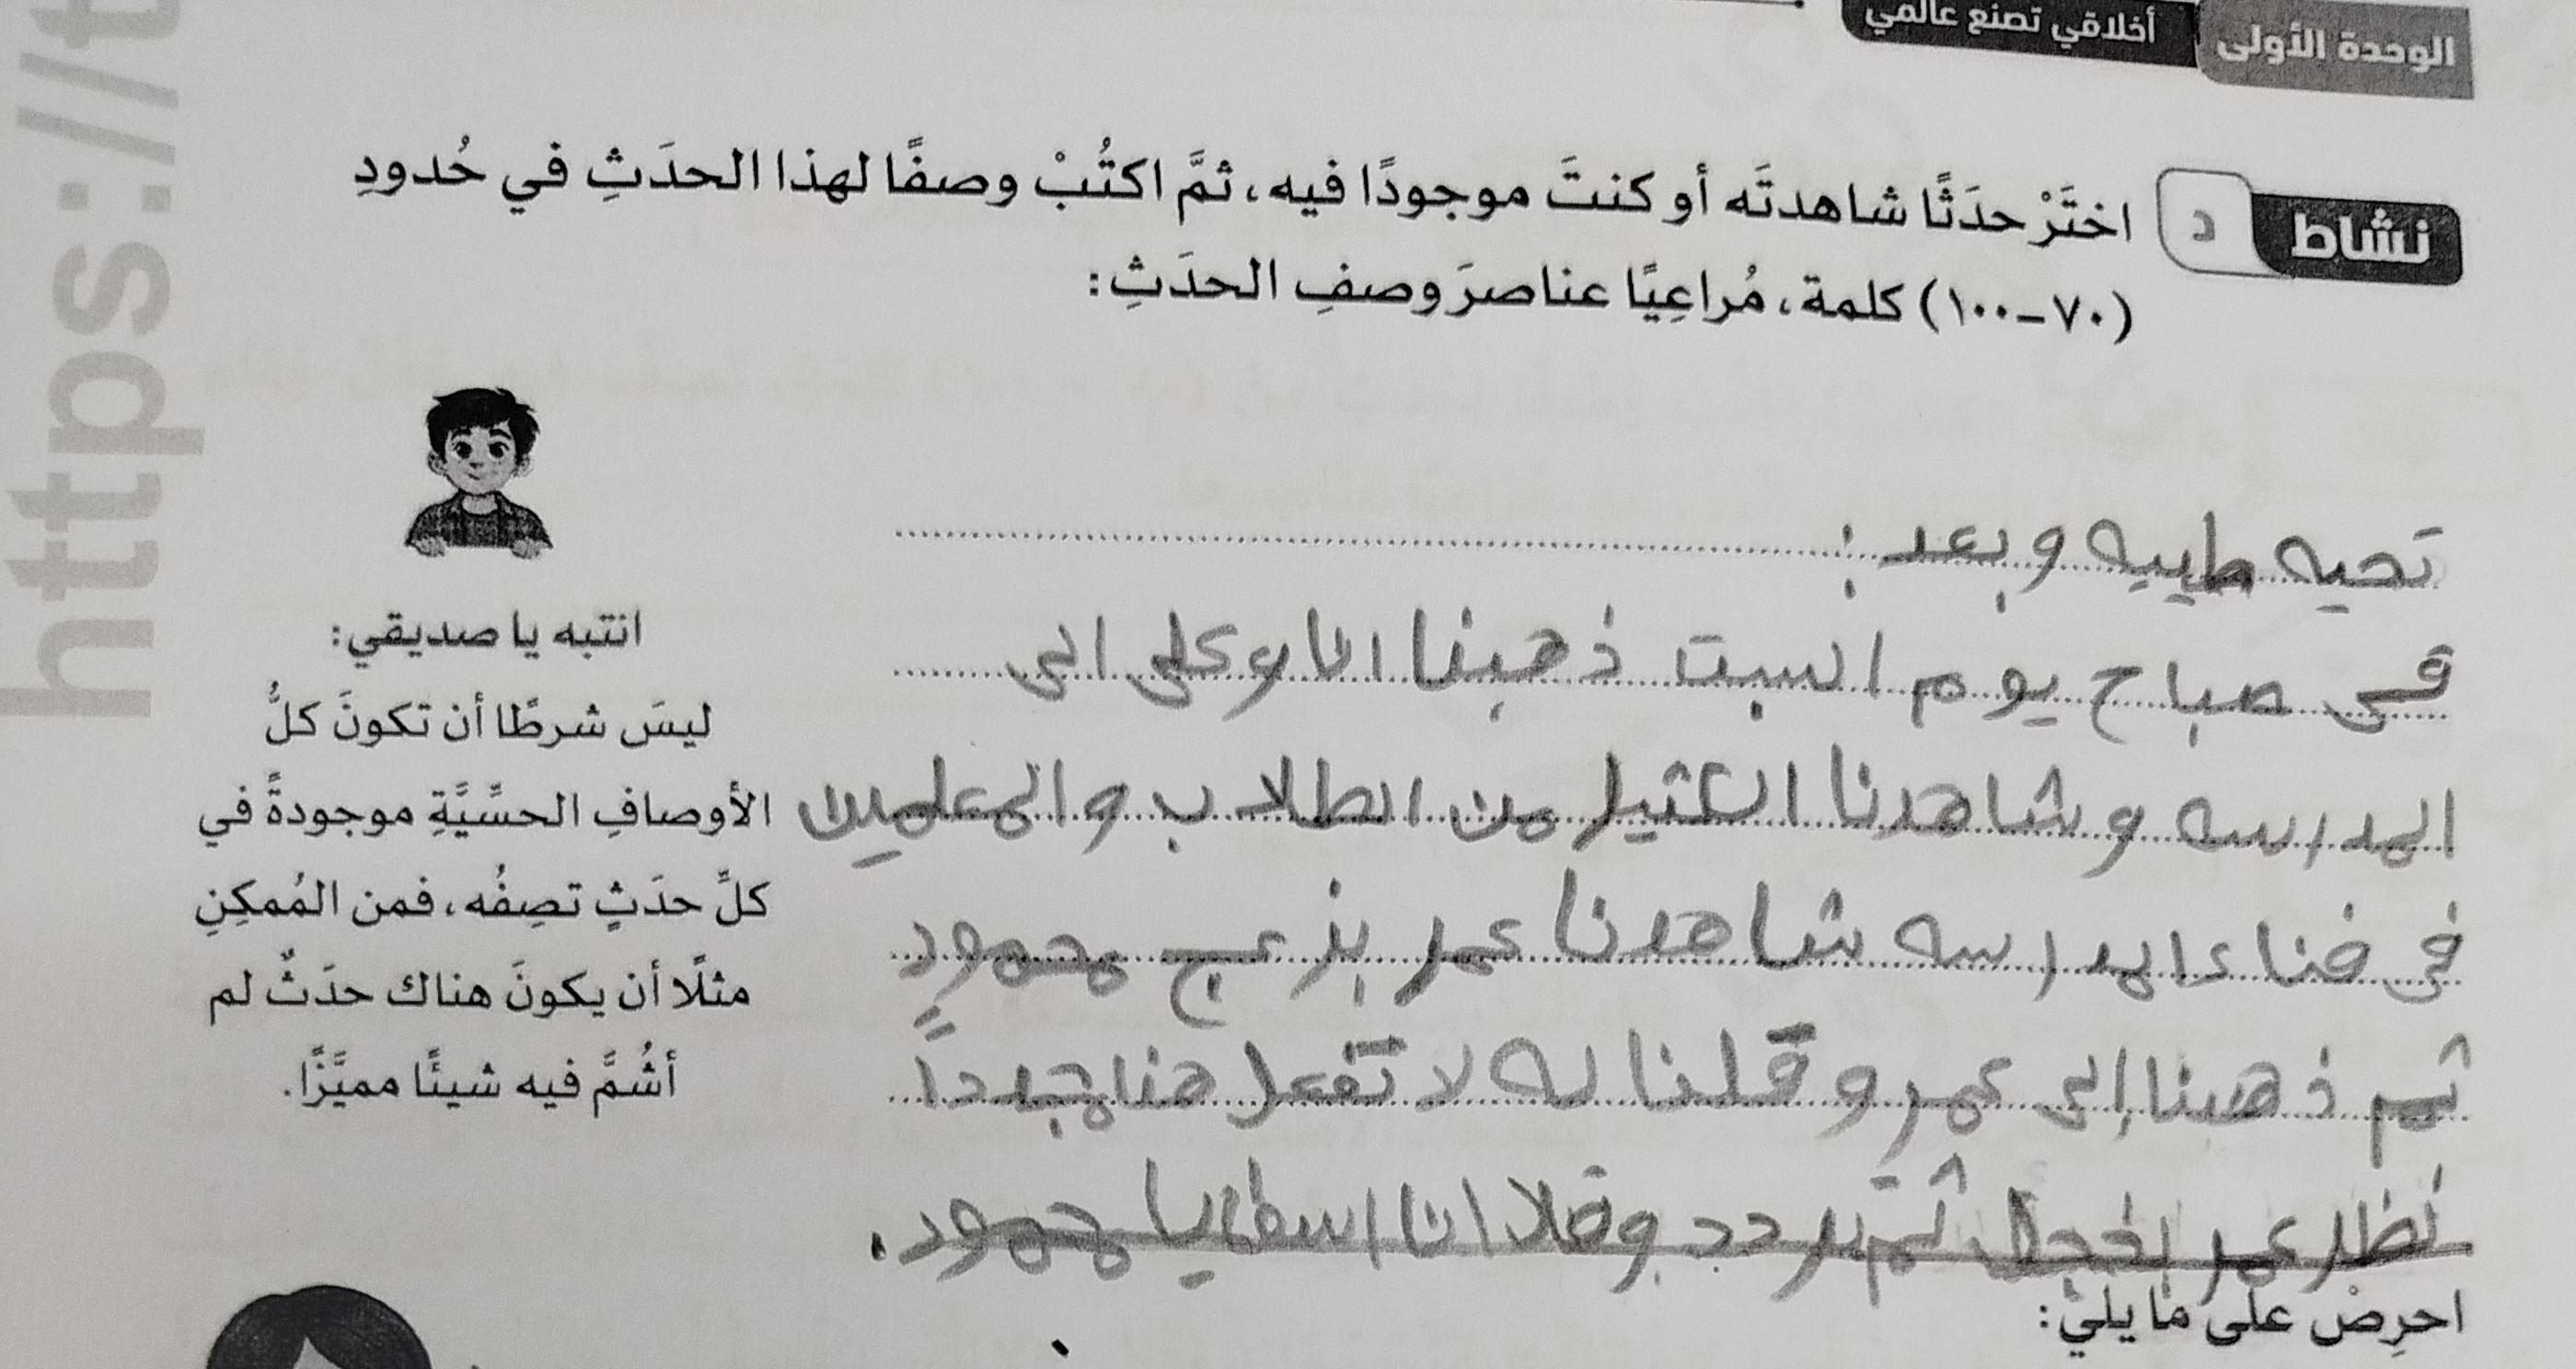 الوحدة الأولى أخلاقي تصنع عالمي
نشاط د اختَرْ حدَثًا شاهدتَه أو كنتَ موجودًا فيه، ثمَّ اكتُبْ وصفًا لهذا الحدَثِ في حُدودِ
(٧٠-١٠٠) كلمة، مُراعِيًا عناصرَ وصفِ الحدَثِ:
تحيه طيبه وبعد:
في صباح يوم السبت ذهبنا انا وعلى الى
المدرسه وشاهدنا الكثير من الطلاب والمعلمين
في فناء المدرسه شاهدنا عمر يزعج محمود
ثم ذهبنا إلى عمر وقلنا له لا تفعل هنا جيداً
نظر عمر بخجل ثم تردد وقلا انا اسف يا حمود.
انتبه يا صديقي:
ليسَ شرطًا أن تكونَ كلُّ
الأوصافِ الحسِّيَّةِ موجودةً في
كلِّ حدَثٍ تصِفُه، فمن المُمكِنِ
مثلًا أن يكونَ هناك حدَثٌ لم
أشُمَّ فيه شيئًا مميَّزًا.
احرِصْ على ما يلي:
https://t